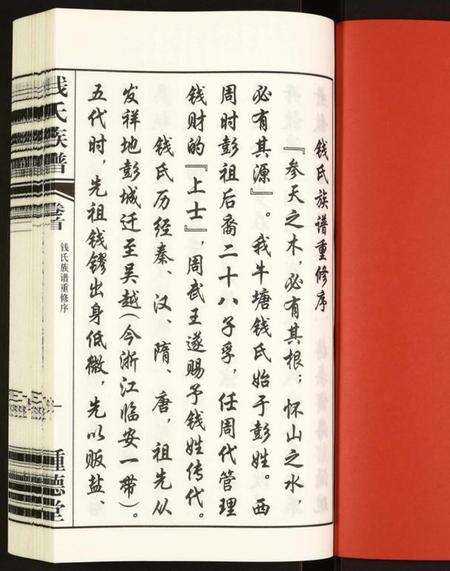 钱氏族谱重修序
『参天之木，必有其根；怀山之水，
必有其源』。我牛塘钱氏始于彭姓。西
周时彭祖后裔二十八子孚，任周代管理
钱财的『上士』，周武王遂赐予钱姓传代。
钱氏历经秦、汉、隋、唐，祖先从
发祥地彭城迁至吴越(今浙江临安一带)。
五代时，先祖钱镠出身低微，先以贩盐
钱氏族谱
卷首
钱氏族谱重修序
一
锺德堂